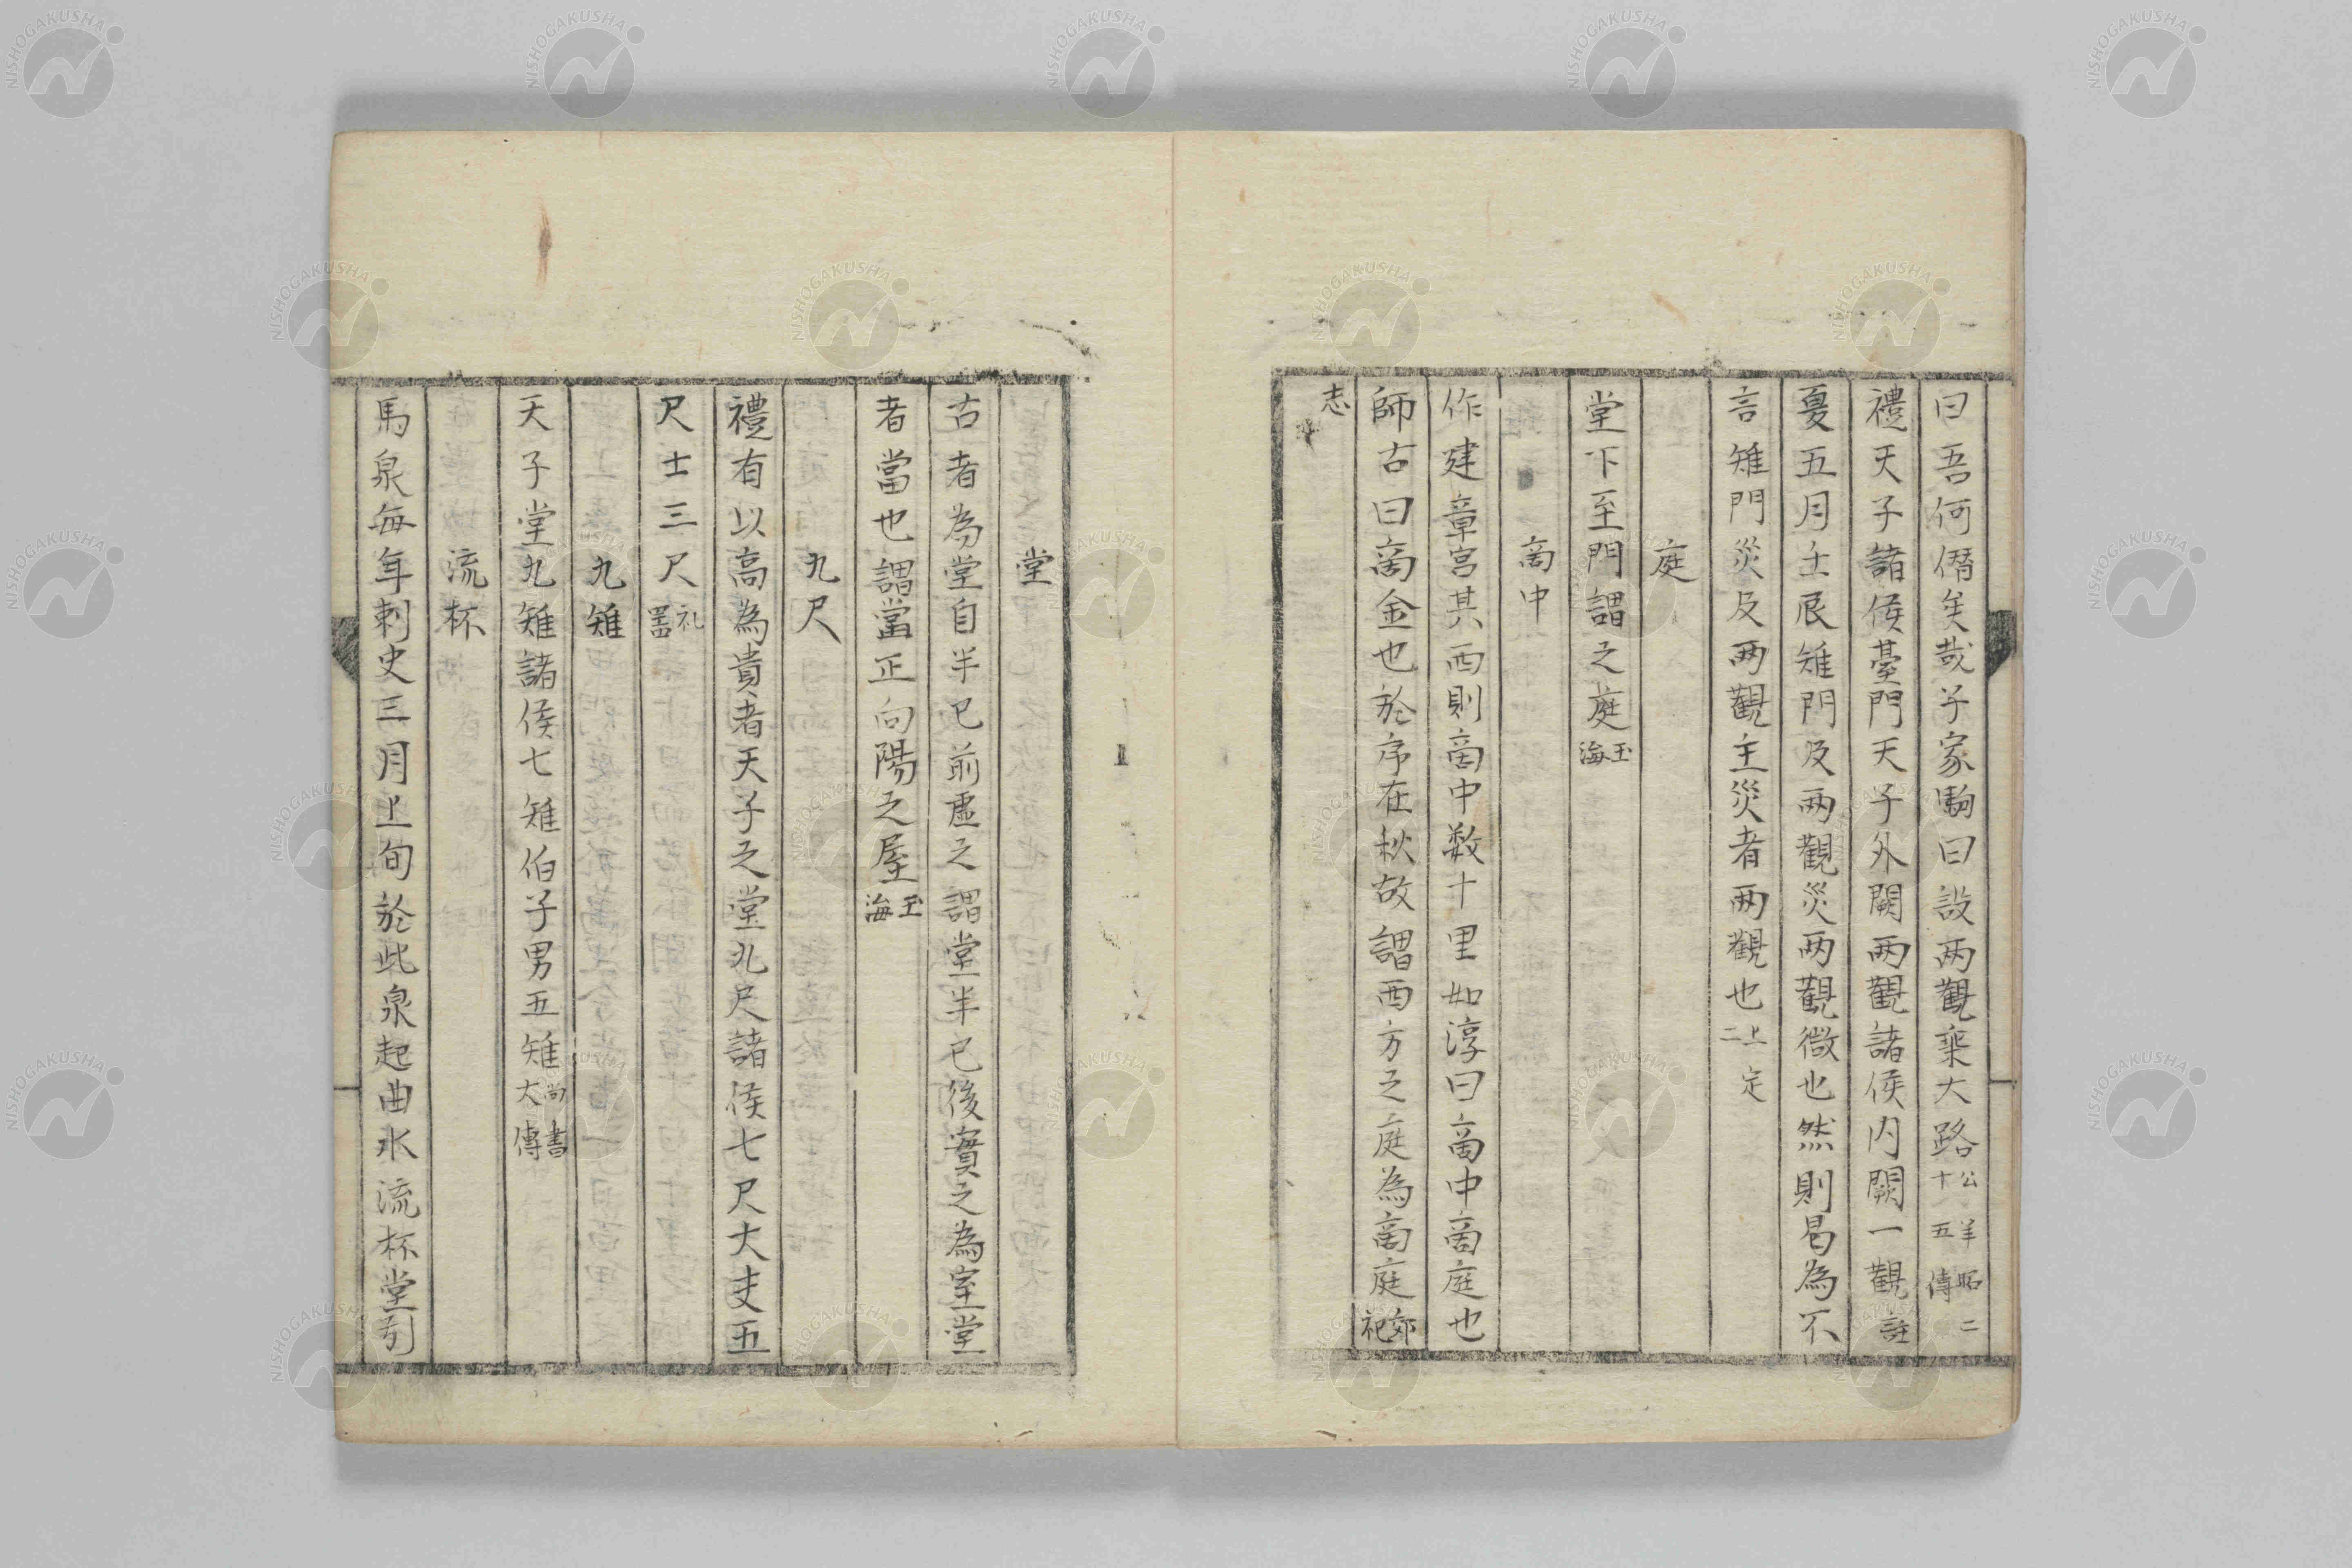 曰吾何僭矣哉子家駒曰設兩觀乘大路公羊昭二十五傳
禮天子諸侯䑓門天子外闕兩觀諸侯内闕一觀註
夏五月壬辰雉門及兩觀災兩觀微也然則曷為不
言雉門災及兩觀主災者兩觀也上二 定
庭
堂下至門謂之庭玉海
啇中
作建章宮其西則啇中数十里如淳曰啇中啇庭也
師古曰啇金也於序在秋故謂西方之庭為啇庭郊祀
志
堂
古者為堂自半已前虛之謂堂半已後實之為室堂
者當也謂當正向陽之屋玉海
九尺
禮有以高為貴者天子之堂九尺諸侯七尺大夫五
尺士三尺礼器
九雉
天子堂九雉諸侯七雉伯子男五雉尚書大傳
流杯
馬泉每年刺史三月上旬於此泉起曲水流杯堂引
NISHOGAKUSHA